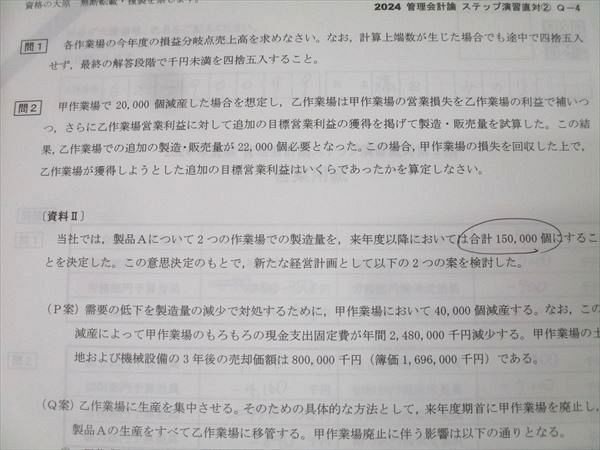 資格の大原 無断転載・複製を禁じます。
2024 管理会計論 ステップ演習直対② Q-4
問1 各作業場の今年度の損益分岐点売上高を求めなさい。なお，計算上端数が生じた場合でも途中で四捨五入
せず，最終の解答段階で千円未満を四捨五入すること。
問2 甲作業場で 20,000 個減産した場合を想定し，乙作業場は甲作業場の営業損失を乙作業場の利益で補いつ
つ，さらに乙作業場営業利益に対して追加の目標営業利益の獲得を掲げて製造・販売量を試算した。この結
果，乙作業場での追加の製造・販売量が 22,000 個必要となった。この場合，甲作業場の損失を回収した上で，
乙作業場が獲得しようとした追加の目標営業利益はいくらであったかを算定しなさい。
〔資料Ⅱ〕
当社では，製品Aについて2つの作業場での製造量を，来年度以降においては合計 150,000 個にするこ
とを決定した。この意思決定のもとで，新たな経営計画として以下の2つの案を検討した。
（P案）需要の低下を製造量の減少で対処するために，甲作業場において 40,000 個減産する。なお，この
減産によって甲作業場のもろもろの現金支出固定費が年間 2,480,000 千円減少する。甲作業場の土
地および機械設備の3年後の売却価額は 800,000 千円（簿価 1,696,000 千円）である。
（Q案）乙作業場に生産を集中させる。そのための具体的な方法として，来年度期首に甲作業場を廃止し，
製品Aの生産をすべて乙作業場に移管する。甲作業場廃止に伴う影響は以下の通りとなる。